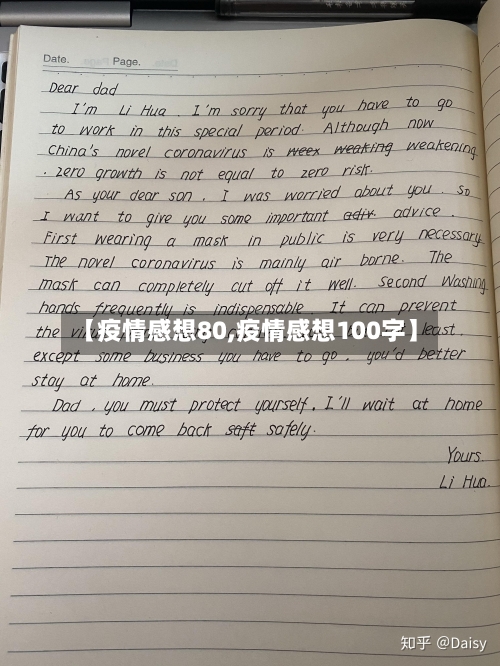 Date. Page.
Dear dad
I'm Li Hua . I'm sorry that you have to go
to work in this special period. Although now
China's novel coronavirus is weex weaking weakening
. zero growth is not equal to zero risk.
As your dear son , I was worried about you . So
I want to give you some important adiv. advice .
First wearing a mask in public is very necessary
The novel coronavirus is mainly air borne. The
mask can completely cut off it well. Second Washing
hands frequently is indispensable It can prevent
the least.
【疫情感想80,疫情感想100字】
except some business you have to go . you'd better
stay at home.
Dad , you must protect yourself. I'll wait at home
for you to come back saft safely.
Yours.
Li Hua.
知乎 @Daisy